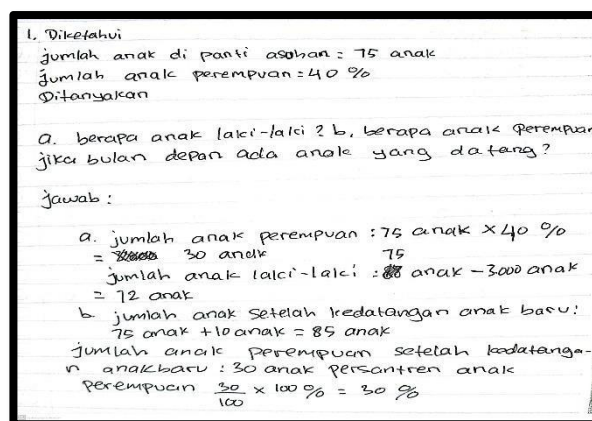 1. Diketahui
jumlah anak di panti asuhan = 75 anak
jumlah anak perempuan = 40 %
Ditanyakan
a. berapa anak laki-laki ? b, berapa anak perempuan
jika bulan depan ada anak yang datang ?
jawab :
a. jumlah anak perempuan : 75 anak × 40 %
= 30 anak
75
jumlah anak laki-laki : anak - 3000 anak
= 72 anak
b jumlah anak setelah kedatangan anak baru :
75 anak + 10 anak = 85 anak
jumlah anak perempuan setelah kedatanga-
n anak baru : 30 anak persantren anak
perempuan 30/100 × 100 % = 30 %